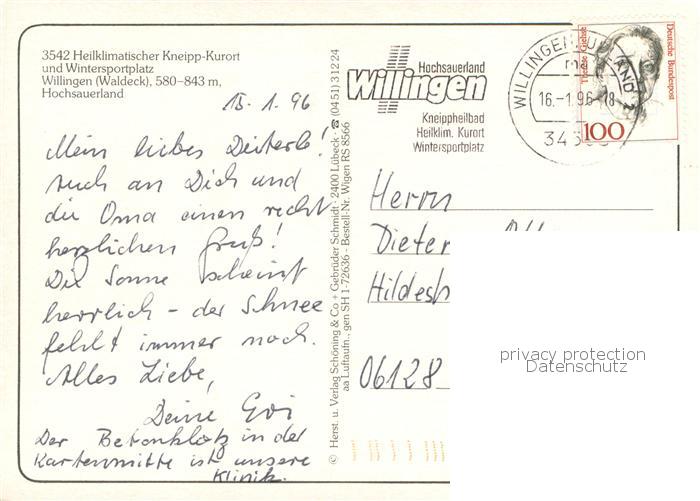 3542 Heilklimatischer Kneipp-Kurort
und Wintersportplatz
Willingen (Waldeck), 580–843 m,
Hochsauerland
15.1.96
Mein liebes Dieterle!
Auch an Dich und
die Oma einen recht
herzlichen Gruß!
Die Sonne scheint
herrlich – der Schnee
fehlt immer noch.
Alles Liebe,
Deine Evi
Der Betonklotz in der
Kartenmitte ist unsere
Klinik.
© Herst. u. Verlag Schöning & Co + Gebrüder Schmidt · 2400 Lübeck · ☎ (04 51) 3 12 24
aa Luftaufn.: gen SH 1-72636 - Bestell-Nr. Wigen RS 8566
Hochsauerland
Willingen
Kneippheilbad
Heilklim. Kurort
Wintersportplatz
WILLINGEN, UPLAND
16.-1.96-18
Deutsche Bundespost
100
Herrn
Dieter
Hildesh
06128
privacy protection
Datenschutz